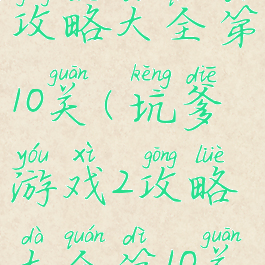 攻略大全第
guān kēng diē
10关(坑爹
yóu xì gōng lüè
游戏2攻略
dà quán dì guān
大全第10关